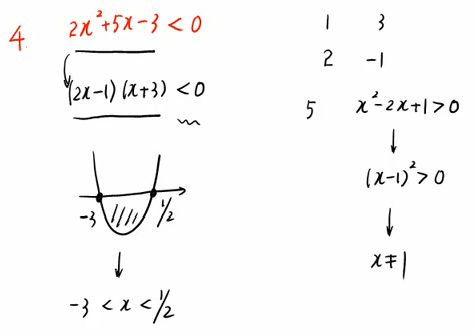 4. 2x²+5x-3<0
(2x-1)(x+3)<0
-3 1/2
-3<x<1/2
1 3
2 -1
5 x²-2x+1>0
(x-1)²>0
x≠1